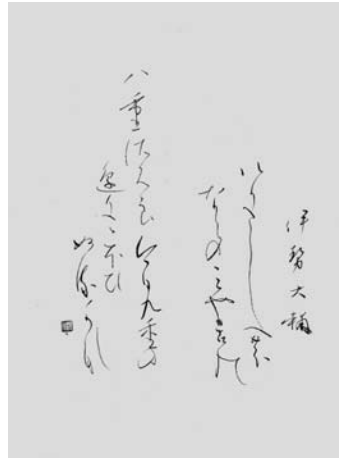 伊勢大輔
いにしへの
ならのみや古の
八重佐久らけふ九重
にほひ
ぬるかな